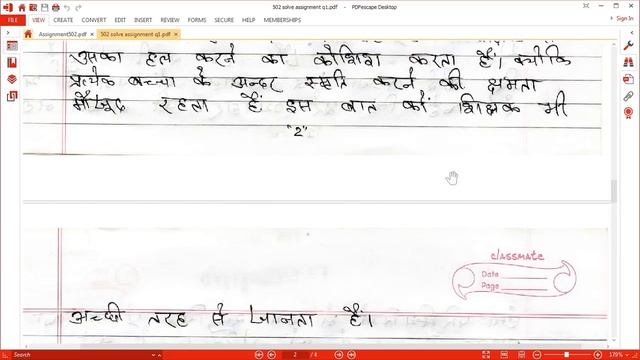 502 solve assignment q1.pdf * - PDFescape Desktop
FILE VIEW CREATE EDIT INSERT REVIEW FORMS SECURE SHARE HELP MEMBERSHIPS
Assignment502.pdf 502 solve assignment q1.pdf
उसका हल करने का कोशिश करता हैं। क्योकि
प्रत्येक बच्चा के अन्दर करने की क्षमता
मौजूद रहता हैं इस बात को शिक्षक भी
"2"
classmate
Date
Page
अच्छी तरह से जानता हैं।
Search
2 / 4
179%